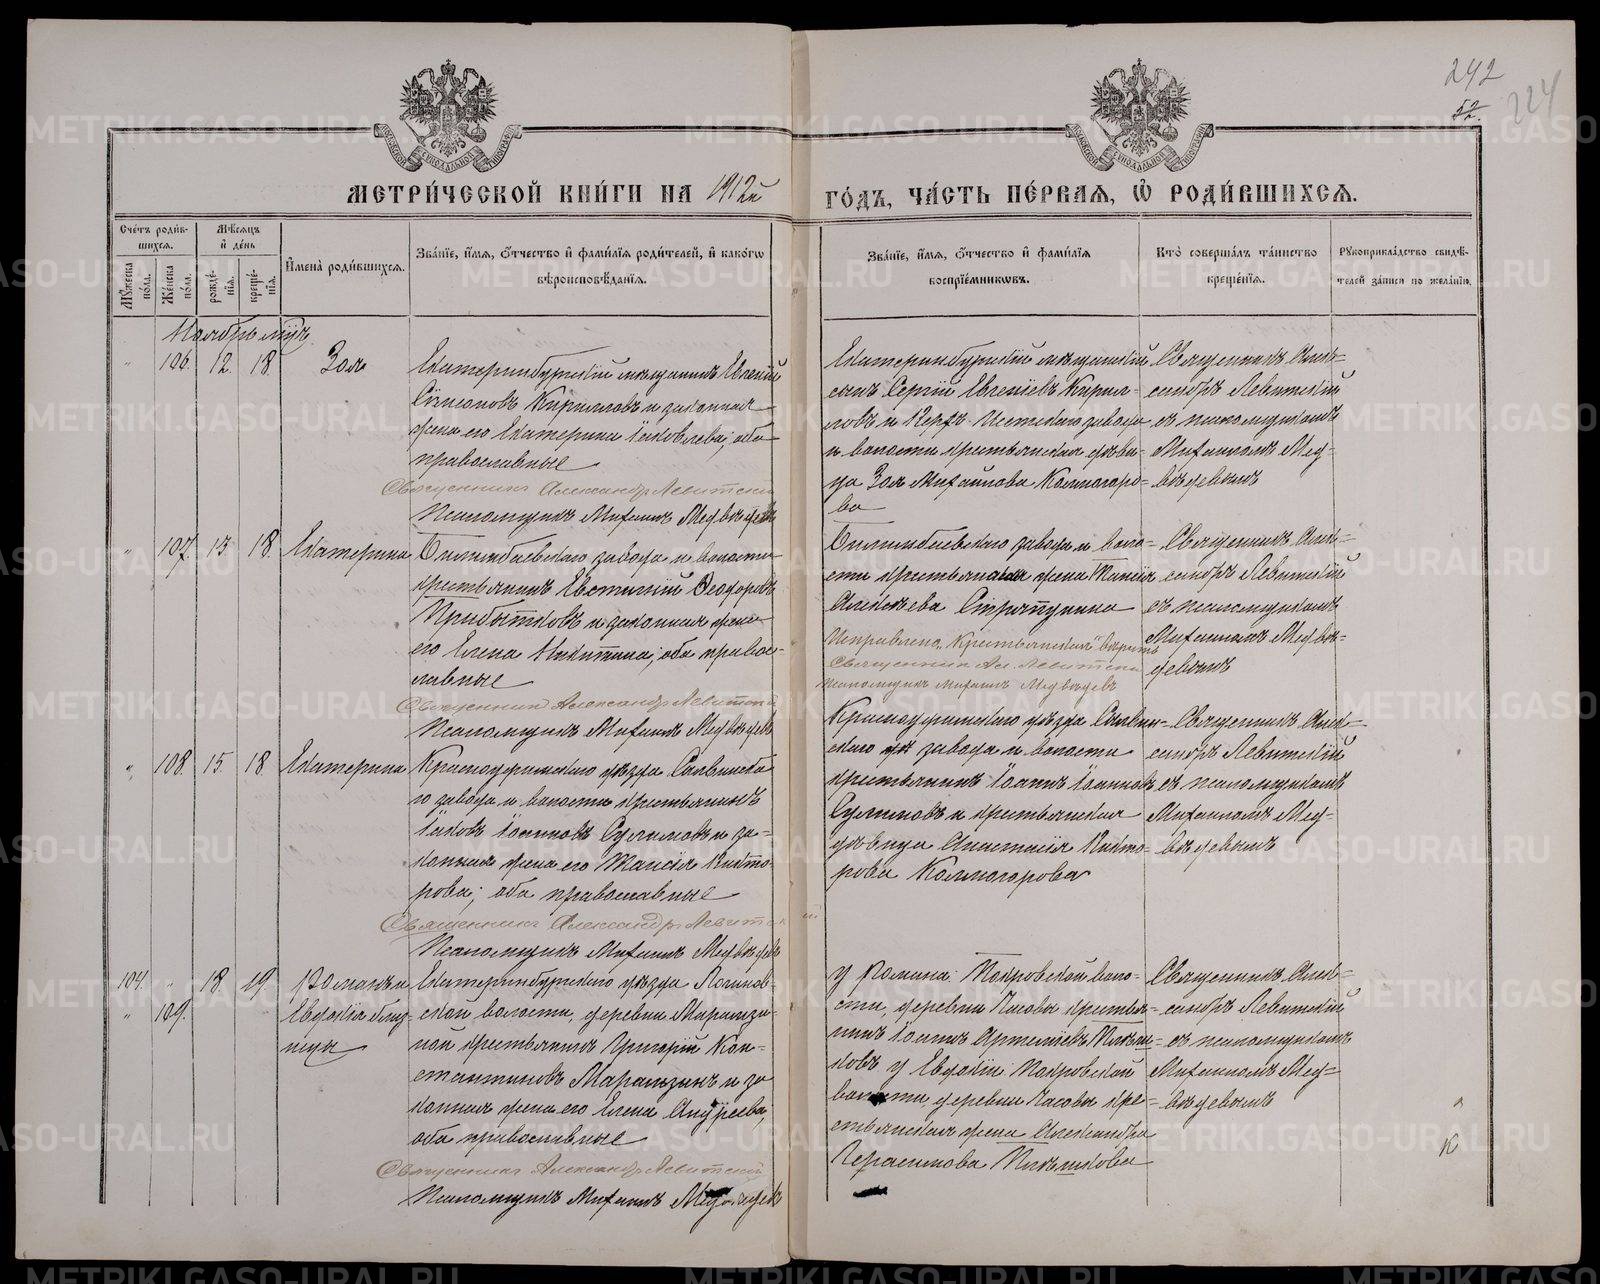 242
52
224
МЕТРИ́ЧЕСКОЙ КНИ́ГИ НА 1912й ГО́ДЪ, ЧА́СТЬ ПЕ́РВАЯ, Ѡ РОДИ́ВШИХСЯ.
Сче́тъ роди́в-
шихся.
Мѣ́сяцъ
и де́нь
Му́жеска по́ла.
Же́нска по́ла.
рожде́-
нія.
креще́-
нія.
Имена̀ роди́вшихся.
Зва́ніе, и́мя, о́тчество и фами́лія роди́телей, и како́гѡ
вѣроисповѣ́данія.
Зва́ніе, и́мя, о́тчество и фами́лія
воспріе́мниковъ.
Кто̀ соверша́лъ та́инство
креще́нія.
Рукоприкла́дство свидѣ́-
телей за́писи по жела́нію.
Ноябрь
106. 12. 18 Зоя
Екатеринбургскій мѣщанинъ Евгеній
Сѵмеоновъ Кирилловъ и законная
жена его Екатерина Іаковлева; оба
православные
Священникъ Александръ Левитскій
Псаломщикъ Михаилъ Медвѣдевъ
Екатеринбургскій мѣщанскій
сынъ Сергій Евгеніевъ Кирил-
ловъ и Верхъ-Исетскаго завода
и волости крестьянская дѣви-
ца Зоя Михаилова Колмогоро-
ва
Священникъ Алек-
сандръ Левитскій
съ псаломщикомъ
Михаиломъ Мед-
вѣдевымъ
107. 13 18. Екатерина
Билимбаевскаго завода и волости
крестьянинъ Евстигній Ѳеодоровъ
Прибытковъ и законная жена
его Елена Никитина; оба право-
славные
Священникъ Александръ Левитскій
Псаломщикъ Михаилъ Медвѣдевъ
Билимбаевскаго завода и воло-
сти крестьянская жена Таисія
Алексѣева Стряпунина
Исправлено „Крестьянская" вѣрить
Священникъ Ал. Левитскій
Псаломщикъ Михаилъ Медвѣдевъ
Священникъ Алек-
сандръ Левитскій
съ псаломщикомъ
Михаиломъ Медвѣ-
девымъ
108. 15. 18. Екатерина
Красноуфимскаго уѣзда Сылвинска-
го завода и волости крестьянинъ
Іаковъ Іоанновъ Сулимовъ и за-
конная жена его Таисія Викто-
рова; оба православные
Священникъ Александръ Левитскій
Псаломщикъ Михаилъ Медвѣдевъ
Красноуфимскаго уѣзда Сылвин-
скаго завода и волости
крестьянинъ Іоаннъ Іоанновъ
Сулимовъ и крестьянская
дѣвица Анастасія Викто-
рова Колмогорова
Священникъ Алек-
сандръ Левитскій
съ псаломщикомъ
Михаиломъ Мед-
вѣдевымъ
104. 18. 19. Романъ и
109. Евдокія близ-
нецы
Екатеринбургскаго уѣзда Логинов-
ской волости, деревни Марамзи-
ной крестьянинъ Григорій Кон-
стантиновъ Марамзинъ и за-
конная жена его Елена Андреева;
оба православные
Священникъ Александръ Левитскій
Псаломщикъ Михаилъ Медвѣдевъ
у Романа: Покровской воло-
сти, деревни Часовы крестья-
нинъ Іоаннъ Артеміевъ
у Евдокіи Покровской
волости, деревни Часовы кре-
стьянская жена Александра
Герасимова
Священникъ Алек-
сандръ Левитскій
съ псаломщикомъ
Михаиломъ Мед-
вѣдевымъ
METRIKI.GASO-URAL.RU